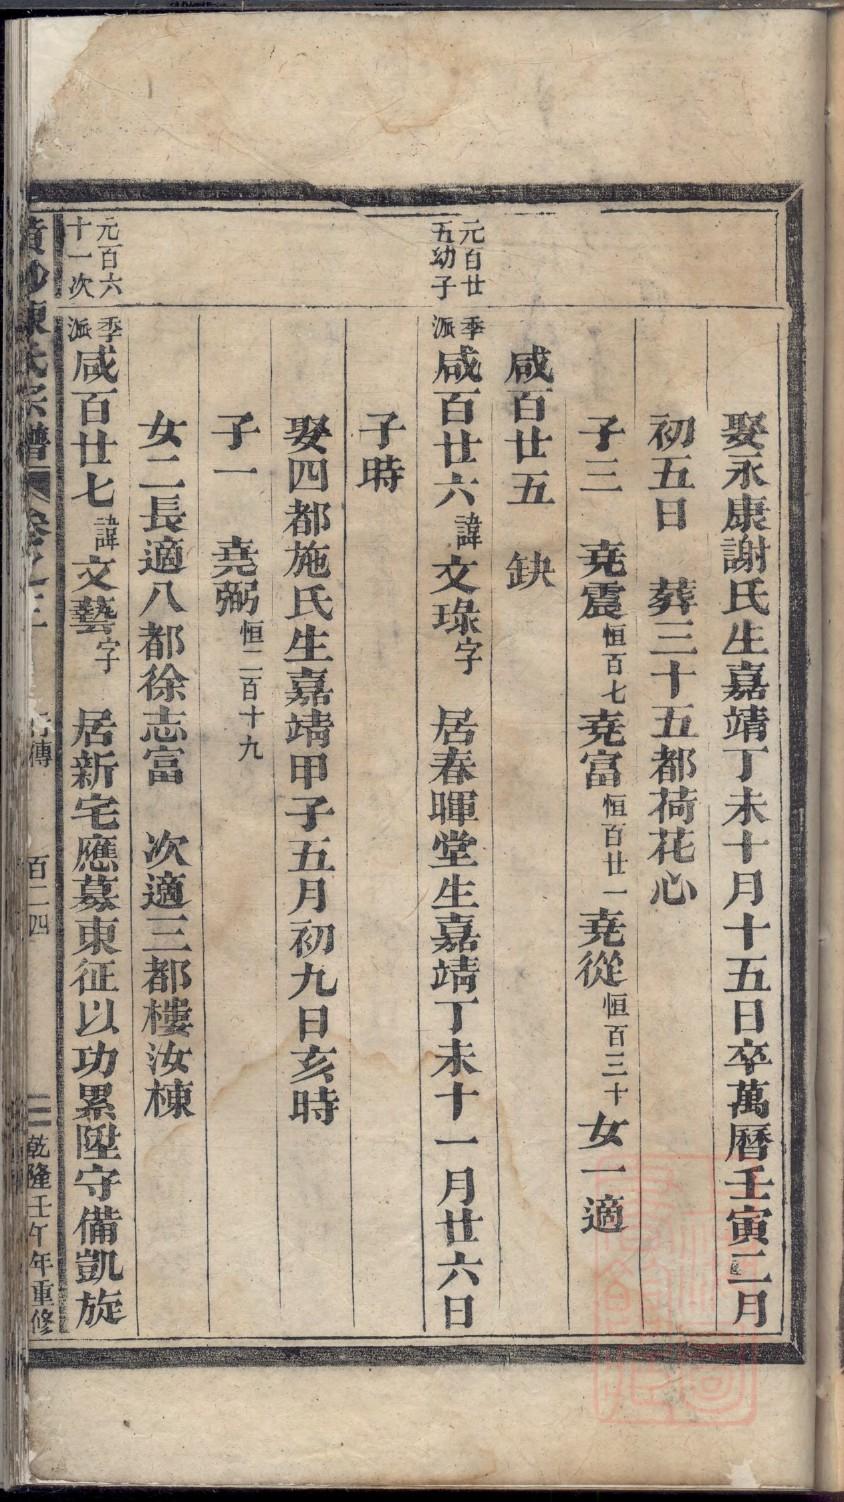 娶永康謝氏生嘉靖丁未十月十五日卒萬曆壬寅二月
初五日　葬三十五都荷花心
子三　堯震恒百七堯富恒百廿一堯從恒百三十女一適
咸百廿五　缺
元百廿五幼子
季派咸百廿六諱文琭字　居春暉堂生嘉靖丁未十一月廿六日
子時
娶四都施氏生嘉靖甲子五月初九日亥時
子一　堯弼恒二百十九
女二長適八都徐志富　次適三都樓汝棟
元百六十一次
季派咸百廿七諱文藝字　居新宅應募東征以功累陞守備凱旋
陳氏宗譜　卷之三　行傳　百二四　乾隆壬午年重修